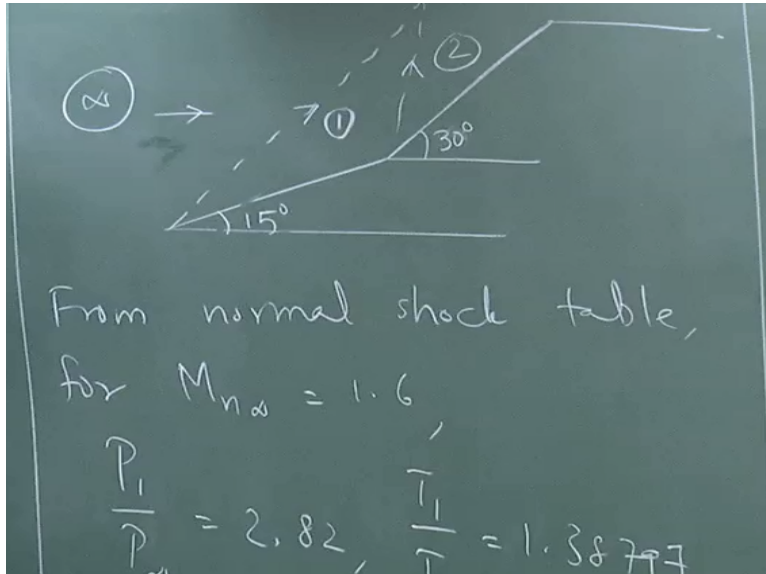 ∞
②
①
30°
15°
From normal shock table,
for Mn∞ = 1.6,
P₁/P∞ = 2.82, T₁/T = 1.38797